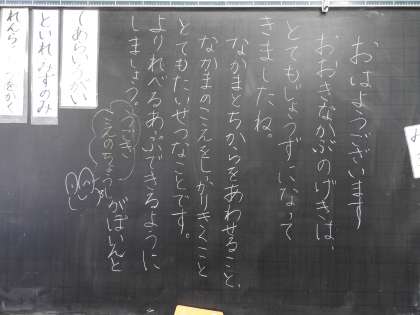 おはようございます
おおきなかぶのげきは、
とてもじょうずになって
きましたね。
なかまとちからをあわせること、
なかまのこえをしっかりきくこと
とてもたいせつなことです。
よりれべるあっぷできるように
しましょう。
うごき
こえのちょうし
がぽいんと
しあらいうがい
といれ・みずのみ